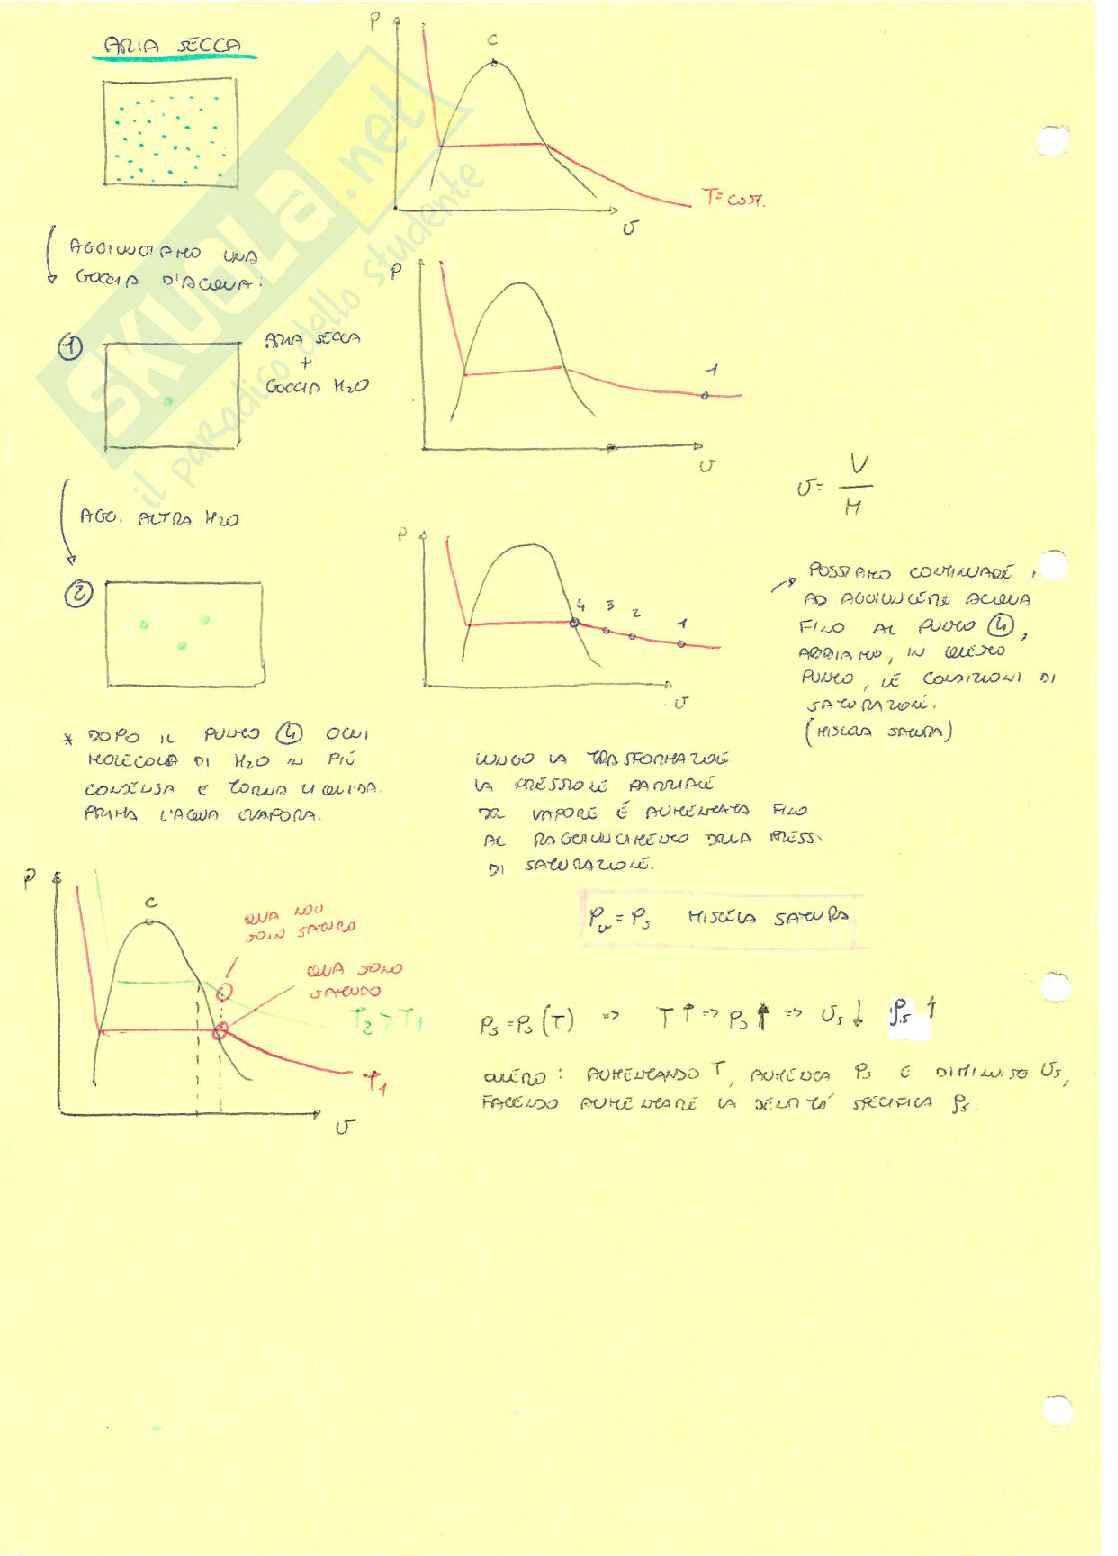 ARIA SECCA
P
C
T=COST.
V
AGGIUNGIAMO UNA
GOCCIA D'ACQUA:
P
1
ARIA SECCA
+
GOCCIA H2O
1
V
V= V/M
AGG. ALTRA H2O
P
2
4 3 2 1
V
POSSIAMO CONTINUARE
AD AGGIUNGERE ACQUA
FINO AL PUNTO 4,
ABBIAMO, IN QUESTO
PUNTO, LE CONDIZIONI DI
SATURAZIONE.
(MISCELA SATURA)
* DOPO IL PUNTO 4 OGNI
MOLECOLA DI H2O IN PIÙ
CONDENSA E TORNA LIQUIDA.
PRIMA L'ACQUA EVAPORA.
LUNGO LA TRASFORMAZIONE
LA PRESSIONE PARZIALE
DEL VAPORE È AUMENTATA FINO
AL RAGGIUNGIMENTO DELLA PRESS.
DI SATURAZIONE.
Pv = Ps MISCELA SATURA
P
C
QUA NON
SONO SATURO
QUA SONO
SATURO
T2 > T1
T1
V
Ps = Ps (T) => T↑ => Ps↑ => Vs↓ ρs↑
OVVERO: AUMENTANDO T, AUMENTA Ps E DIMINUISCE Vs,
FACENDO AUMENTARE LA DENSITÀ SPECIFICA ρs
SKUOLA.net
il paradiso dello studente